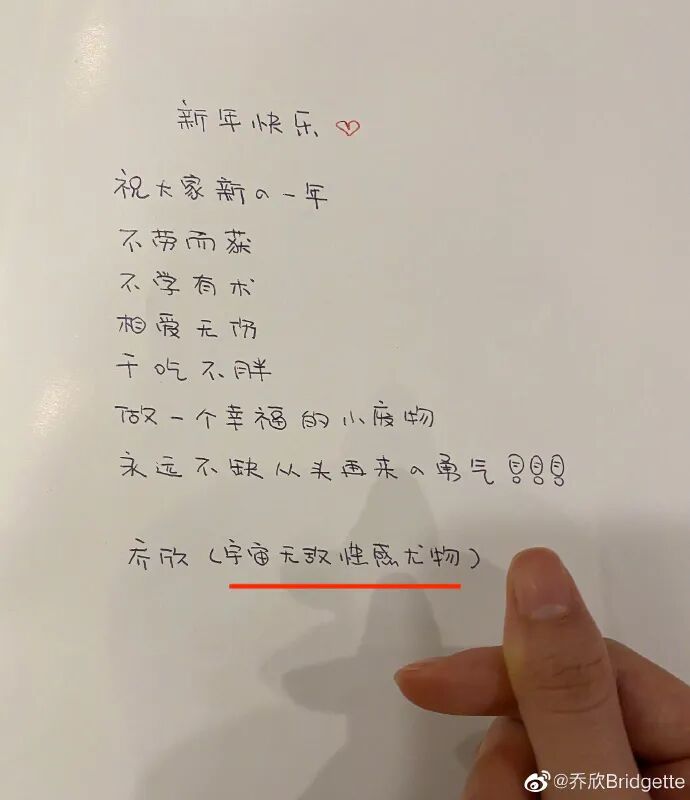 新年快乐♡
祝大家新の一年
不劳而获
不学有术
相爱无伤
干吃不胖
做一个幸福的小废物
永远不缺从头再来の勇气!!!
乔欣(宇宙无敌性感尤物)
@乔欣Bridgette